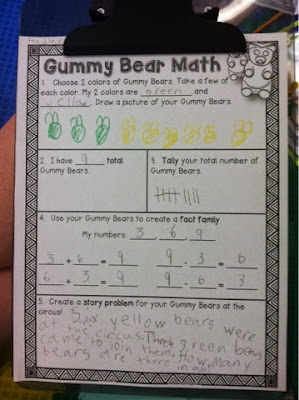 Gummy Bear Math
1. Choose 2 colors of Gummy Bears. Take a few of
each color. My 2 colors are green and
yellow. Draw a picture of your Gummy Bears.
2. I have 9 total
Gummy Bears.
3. Tally your total number of
Gummy Bears.
4. Use your Gummy Bears to create a fact family.
My numbers: 3 6 9
3 + 6 = 9 9 - 3 = 6
6 + 3 = 9 9 - 6 = 3
5. Create a story problem for your Gummy Bears at the
circus! Six yellow bears were
at the circus. Three green bears
came to join them. How Many
bears are there in all?